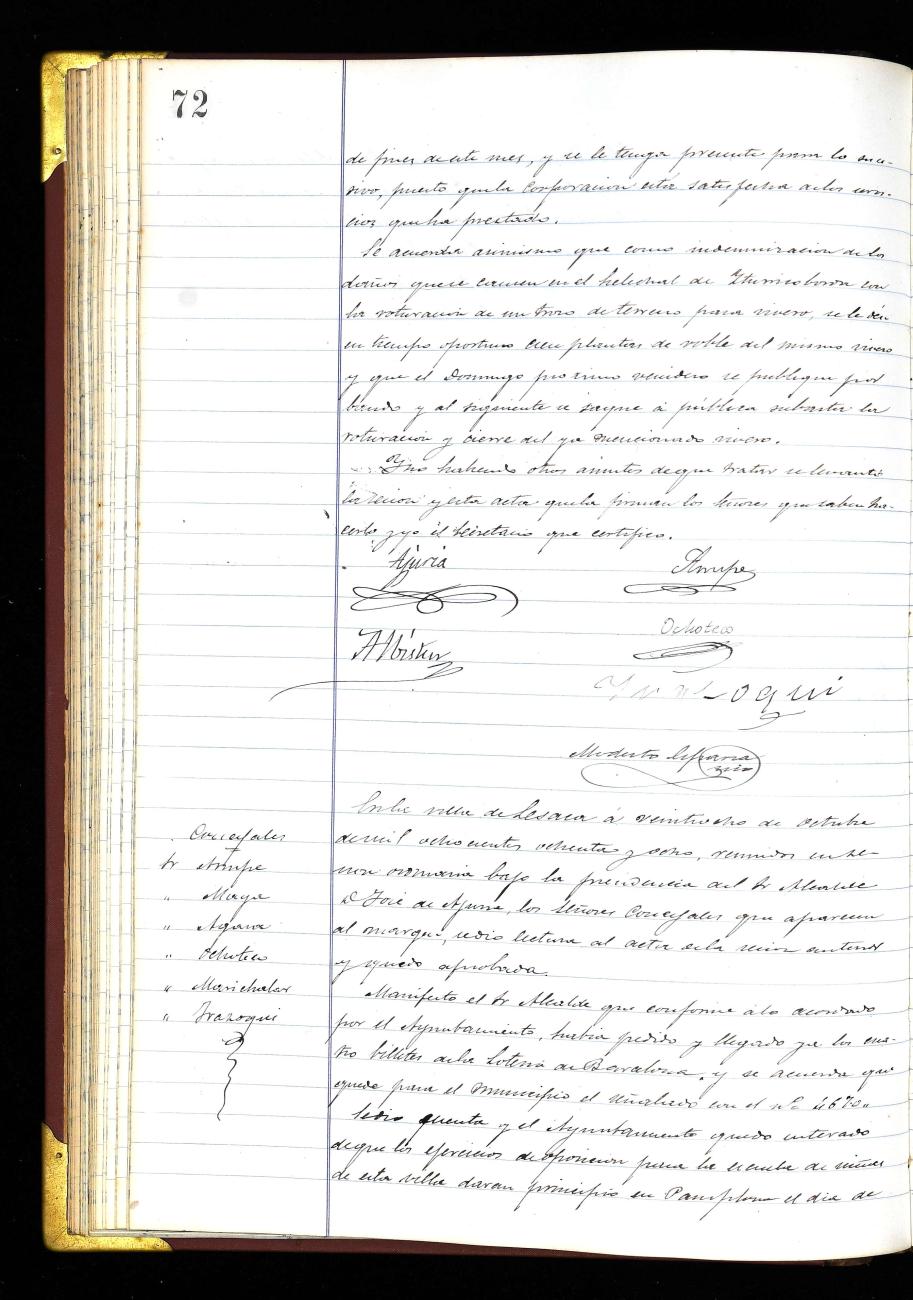 72
de fines de este mes, y se le tenga presente para lo suce-
sivo, puesto que la Corporacion está satisfecha de los servi-
cios que ha prestado.
Se acuerda asimismo que como indemnizacion de los
daños que se causen en el helechal de Yturricoborda con
la roturacion de un trozo de terreno para vivero, se le den
en tiempo oportuno cien plantas de roble del mismo vivero
y que el Domingo proximo venidero se publique por
bando y al siguiente se saque á pública subasta la
roturacion y cierre del ya mencionado vivero.
Y no habiendo otros asuntos de que tratar se levantó
la sesion y esta acta que la firman los Señores que saben ha-
cerlo y yo el Secretario que certifico.
Ajuria
Arrupe
Ochoteco
Albistur
Yrazoqui
Modesto
En la villa de Lesaca á veintiocho de octubre
de mil ochocientos ochenta y ocho, reunidos en se-
sion ordinaria bajo la presidencia del Sr Alcalde
D José de Ajuria, los Señores Concejales que aparecen
al margen, se dio lectura al acta de la sesion anterior
y quedo aprobada.
Concejales
Sr Arrupe
" Maya
" Agara
" Ochoteco
" Marichalar
" Irazoqui
Manifesto el Sr Alcalde que conforme á lo acordado
por el Ayuntamiento, habia pedido y llegado ya los cua-
tro billetes de la Loteria de Barcelona, y se acuerda que
quede para el municipio el señalado con el nº 4670.
Se dio cuenta y el Ayuntamiento quedo enterado
de que los ejercicios de oposicion para la escuela de niñas
de esta villa daran principio en Pamplona el dia de